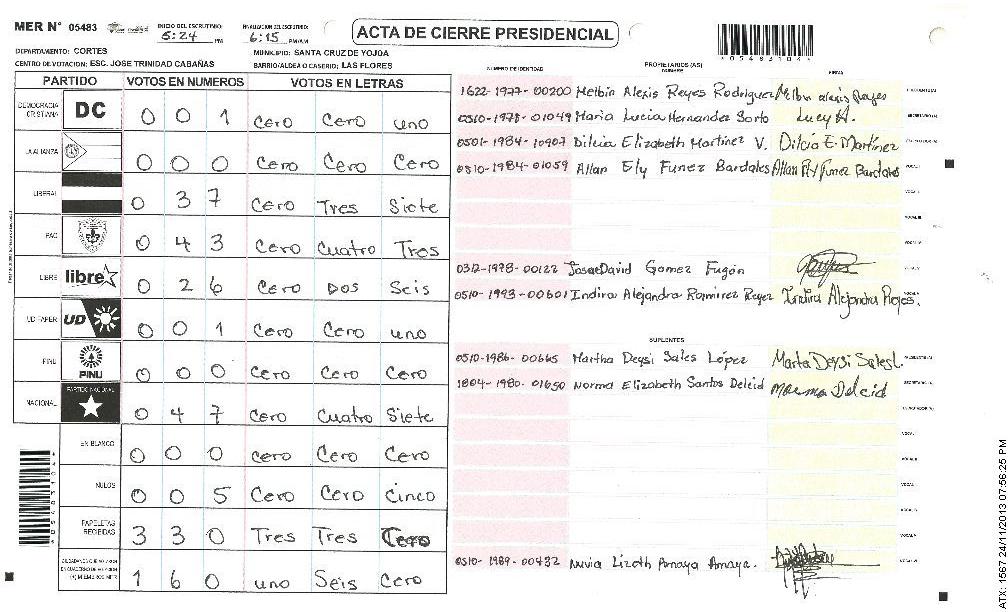 MER N° 05483
INICIO DEL ESCRUTINIO
5:24 PM
FINALIZACION DEL ESCRUTINIO
6:15 PM/AM
ACTA DE CIERRE PRESIDENCIAL
*05483104*
DEPARTAMENTO: CORTES
MUNICIPIO: SANTA CRUZ DE YOJOA
CENTRO DE VOTACION: ESC. JOSE TRINIDAD CABAÑAS
BARRIO/ALDEA O CASERIO: LAS FLORES
PARTIDO VOTOS EN NUMEROS VOTOS EN LETRAS
DEMOCRACIA CRISTIANA DC 0 0 1 Cero Cero uno
LA ALIANZA 0 0 0 Cero Cero Cero
LIBERAL 0 3 7 Cero Tres Siete
PAC 0 4 3 Cero Cuatro Tres
LIBRE libre 0 2 6 Cero Dos Seis
UD FAPER UD 0 0 1 Cero Cero uno
PINU PINU 0 0 0 Cero Cero Cero
NACIONAL PARTIDO NACIONAL 0 4 7 Cero Cuatro Siete
EN BLANCO 0 0 0 Cero Cero Cero
NULOS 0 0 5 Cero Cero Cinco
PAPELETAS RECIBIDAS 3 3 0 Tres Tres Cero
1 6 0 uno Seis Cero
NUMERO DE IDENTIDAD
PROPIETARIOS (AS)
NOMBRE
FIRMA
1622-1977-00200 Melbin Alexis Reyes Rodriguez Melbin alexis Reyes
0510-1978-01049 Maria Lucia Hernandez Sorto Lucy H.
0501-1984-10907 Dilcia Elizabeth Martinez V. Dilcia E. Martínez
0510-1984-01059 Allan Ely Funez Bardales Allan Ely Funez Bardales
0312-1978-00122 David Gomez Fugón
0510-1993-00601 Indira Alejandra Ramirez Reyes Indira Alejandra Reyes.
SUPLENTES
0510-1986-00665 Martha Deysi Sales López Marta Deysi Sales L.
1804-1980-01650 Norma Elizabeth Santos Delcid Norma Delcid
0510-1989-00432 Nuvia Lizeth Amaya.
ATX: 1567 24/11/2013 07:56:25 PM